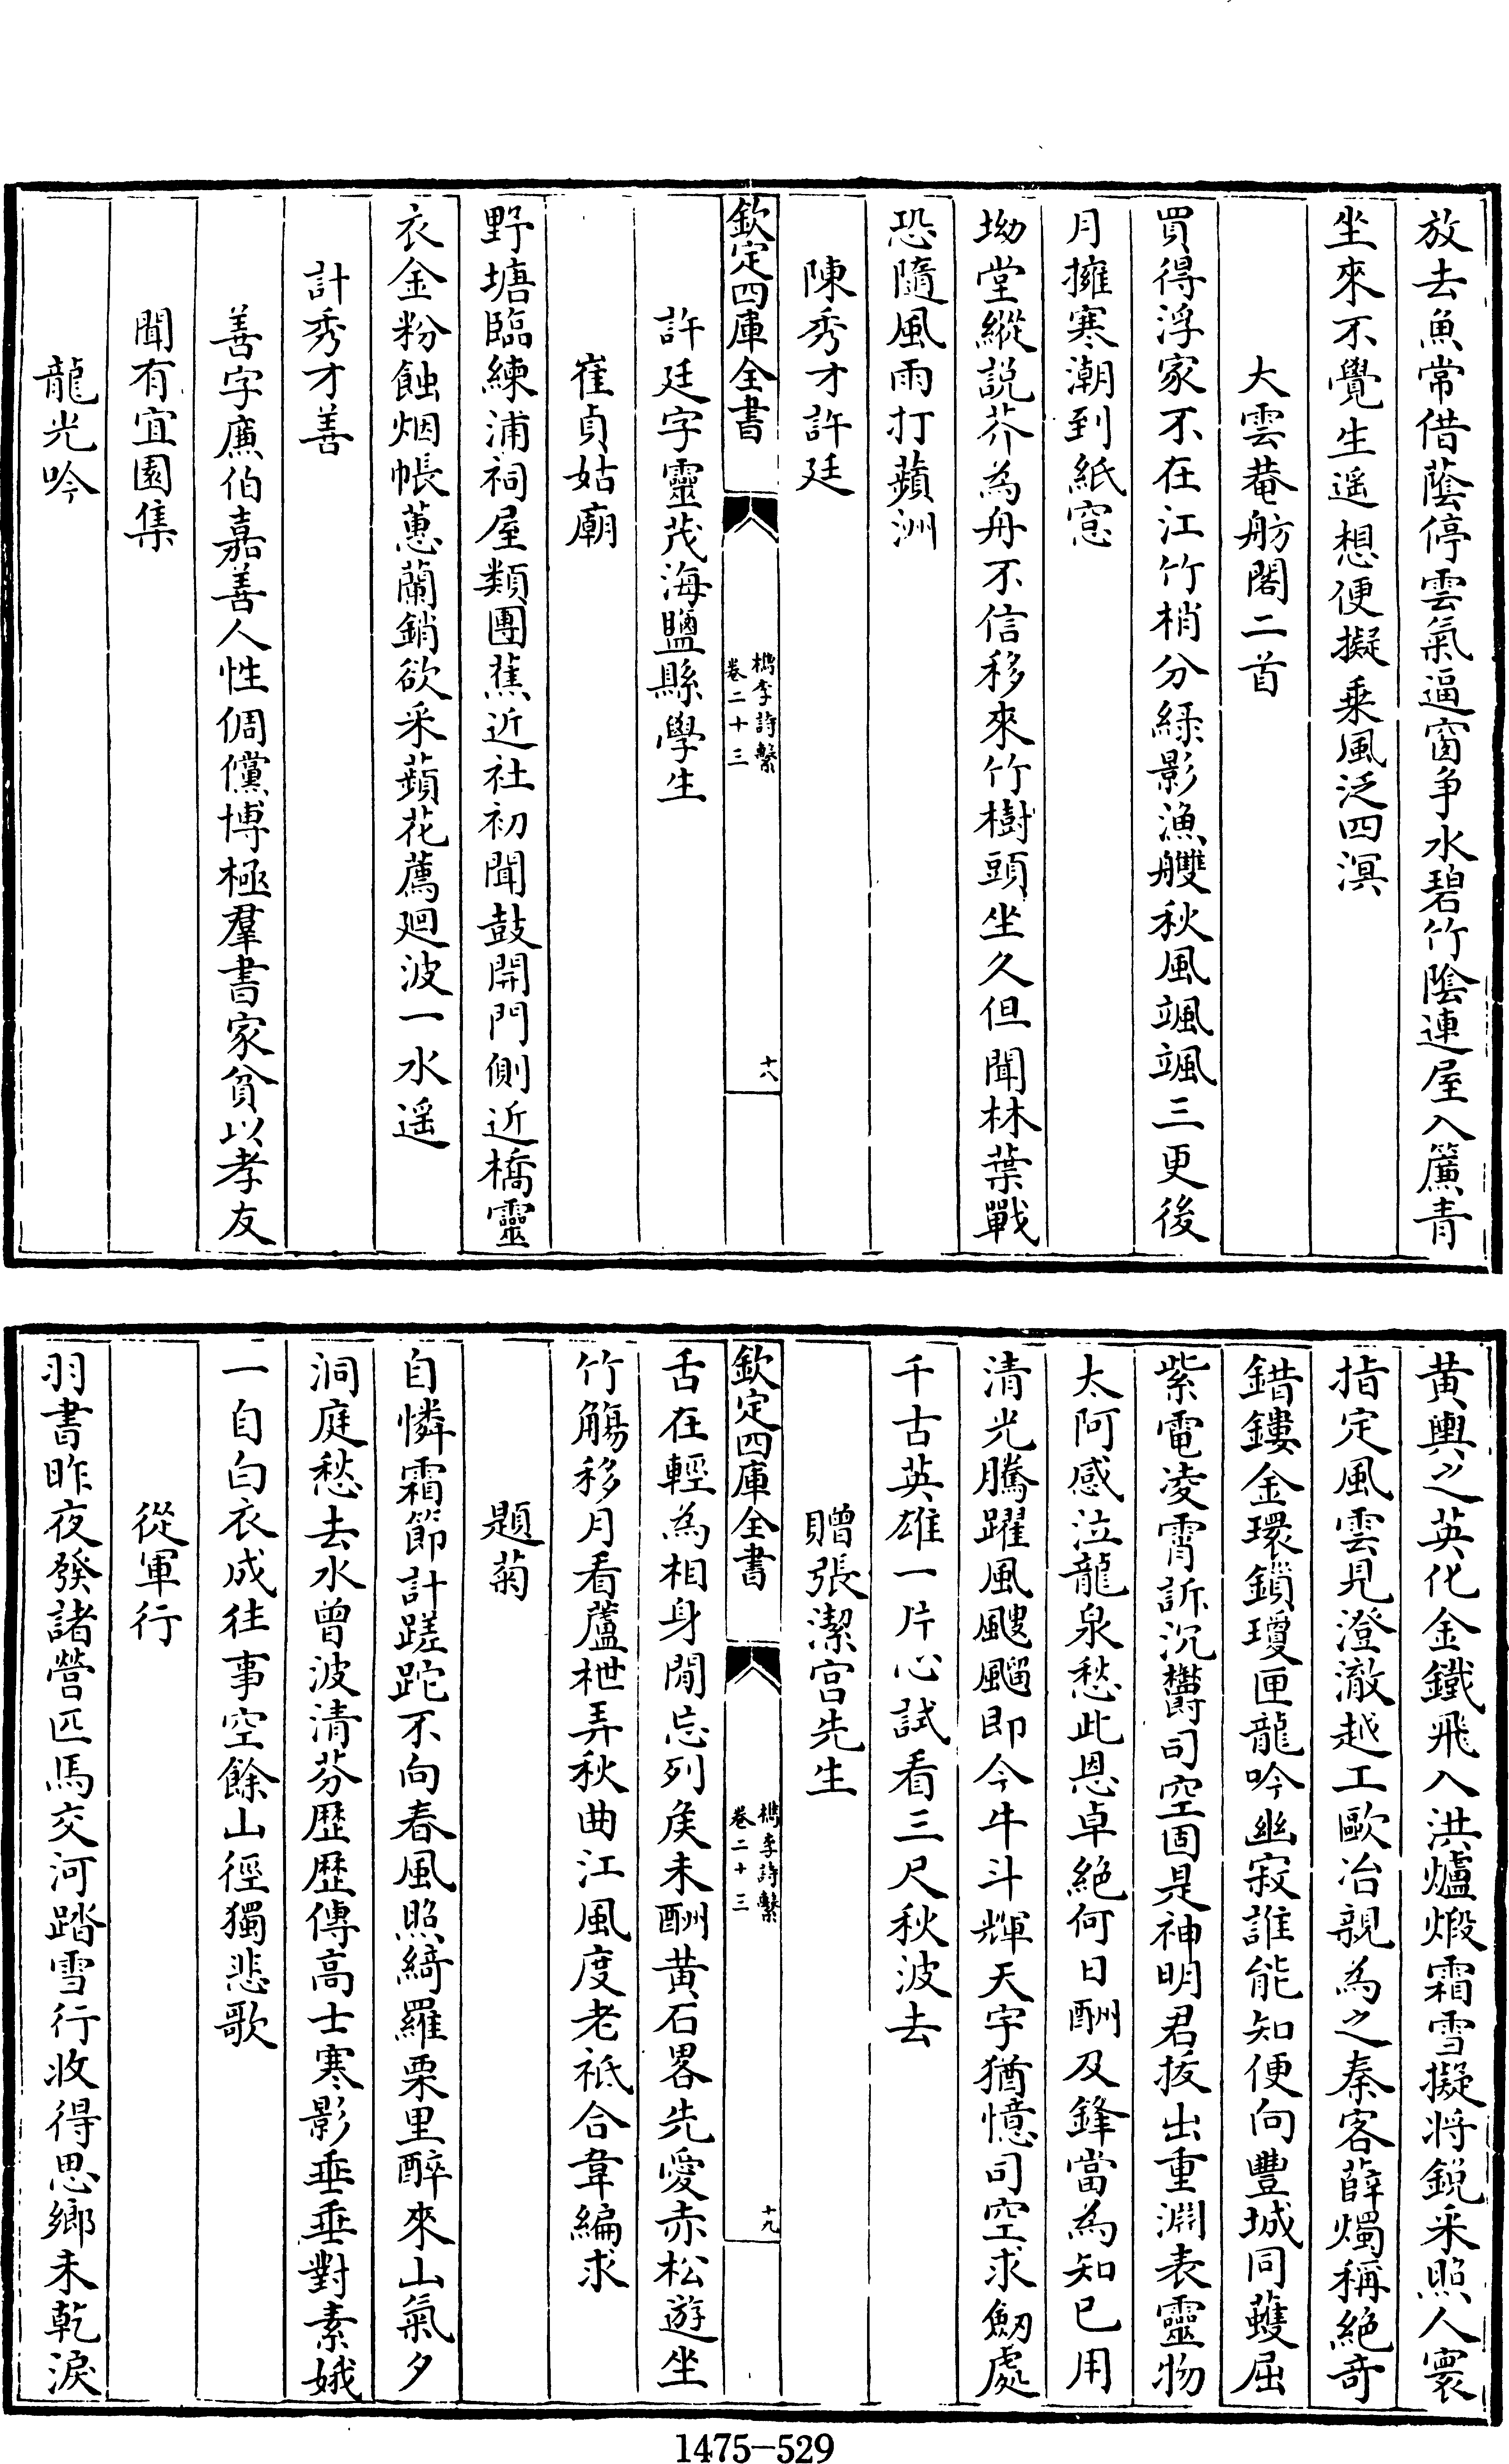 放去魚常借蔭停雲氣逼窗争水碧竹陰連屋入簾青
坐來不覺生遥想便擬乗風泛四溟
大雲菴舫閣二首
買得浮家不在江竹梢分緑影漁艭秋風颯颯三更後
月擁寒潮到紙窓
坳堂縱説芥為舟不信移來竹樹頭坐久但聞林葉戰
恐隨風雨打蘋洲
陳秀才許廷
欽定四庫全書
檇李詩繫
卷二十三
十八
許廷字靈茂海鹽縣學生
崔貞姑廟
野塘臨練浦祠屋類團蕉近社初聞鼓開門側近橋靈
衣金粉蝕烟帳蕙蘭銷欲采蘋花薦廻波一水遥
計秀才善
善字廉伯嘉善人性倜儻博極羣書家貧以孝友
聞有宜園集
龍光吟
黄輿之英化金鐵飛入洪爐煅霜雪擬将鋭采照人寰
指定風雲見澄澈越工歐冶親為之秦客薛燭稱絶奇
錯鏤金環鎖瓊匣龍吟幽寂誰能知便向豐城同蠖屈
紫電凌霄訴沉欝司空固是神明君拔出重淵表靈物
太阿感泣龍泉愁此恩卓絶何日酬及鋒當為知已用
清光騰躍風颼飅即今牛斗輝天宇猶憶司空求劒處
千古英雄一片心試看三尺秋波去
贈張潔宫先生
欽定四庫全書
檇李詩繫
卷二十三
十九
舌在輕為相身閒忘列矦未酬黄石畧先愛赤松遊坐
竹觴移月看蘆枻弄秋曲江風度老祗合韋編求
題菊
自憐霜節計蹉跎不向春風照綺羅栗里醉來山氣夕
洞庭愁去水曾波清芬歴歴傳高士寒影垂垂對素娥
一自白衣成往事空餘山徑獨悲歌
從軍行
羽書昨夜發諸營匹馬交河踏雪行收得思鄉未乾淚
1475-529